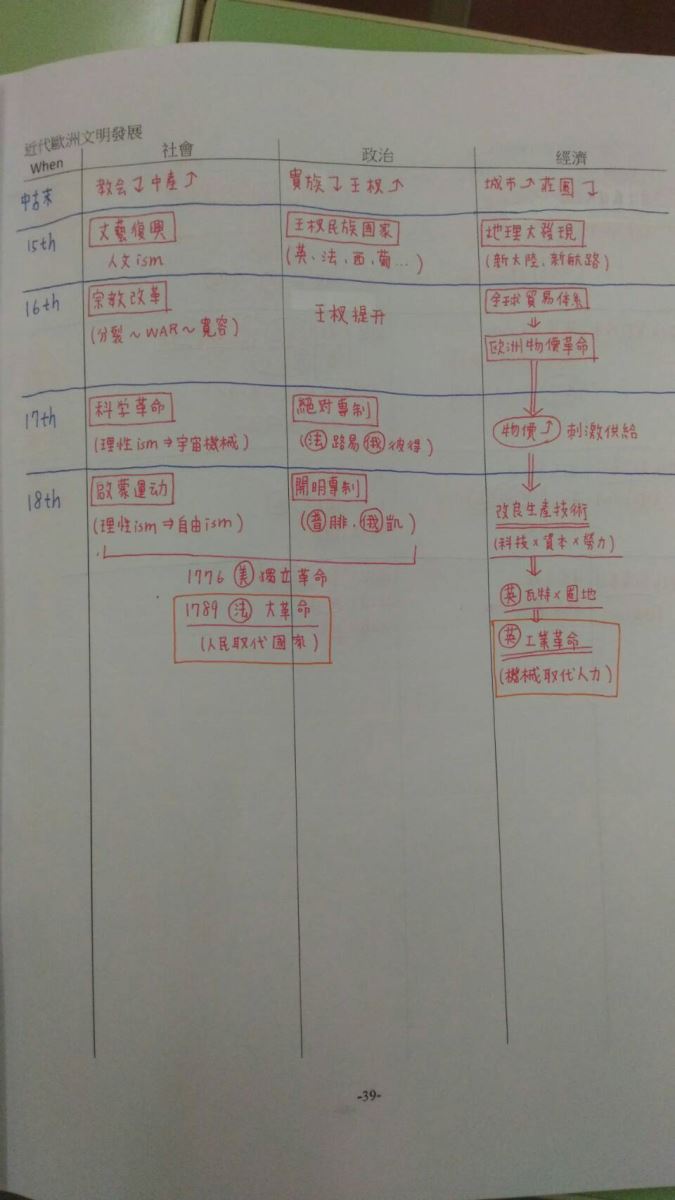 近代歐洲文明發展
When 社會 政治 經濟
中古末 教会↓中產↑ 貴族↓王权↑ 城市↑莊園↓
15th 文藝復興 王权民族國家 地理大發現
人文ism (英、法、西、葡...) (新大陸、新航路)
16th 宗教改革 王权提升 全球貿易体系
(分裂~WAR~寬容) ⇓
歐洲物價革命
⇓
17th 科学革命 絕对專制 物價↑ 刺激供給
(理性ism⇒宇宙機械) (法路易 俄彼得)
⇓
18th 啟蒙运动 開明專制 改良生產技術
(理性ism⇒自由ism) (普腓、俄凱) (科技×資本×勞力)
⇓
1776 美 獨立革命 英 瓦特×圈地
⇓
1789 法 大革命 英 工業革命
(人民取代國家) (機械取代人力)
-39-